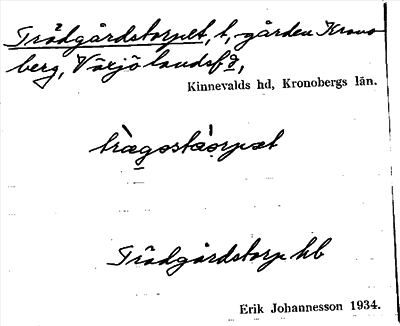 Trädgårdstorpet, t, gården Krono
berg, Växjö landsfg,
Kinnevalds hd, Kronobergs län.
trägostäorpet
Trädgårdstorp hb
Erik Johannesson 1934.